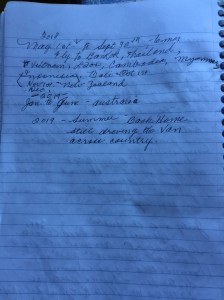 2018
to Sept 30th
fly to Thailand,
Vietnam, Laos, Cambodia, Myanmar
Indonesia, Bali - Oct
Nov New Zealand
- 2019
Jan to June - australia
2019 - Summer Back Home
still driving the Van
across country.